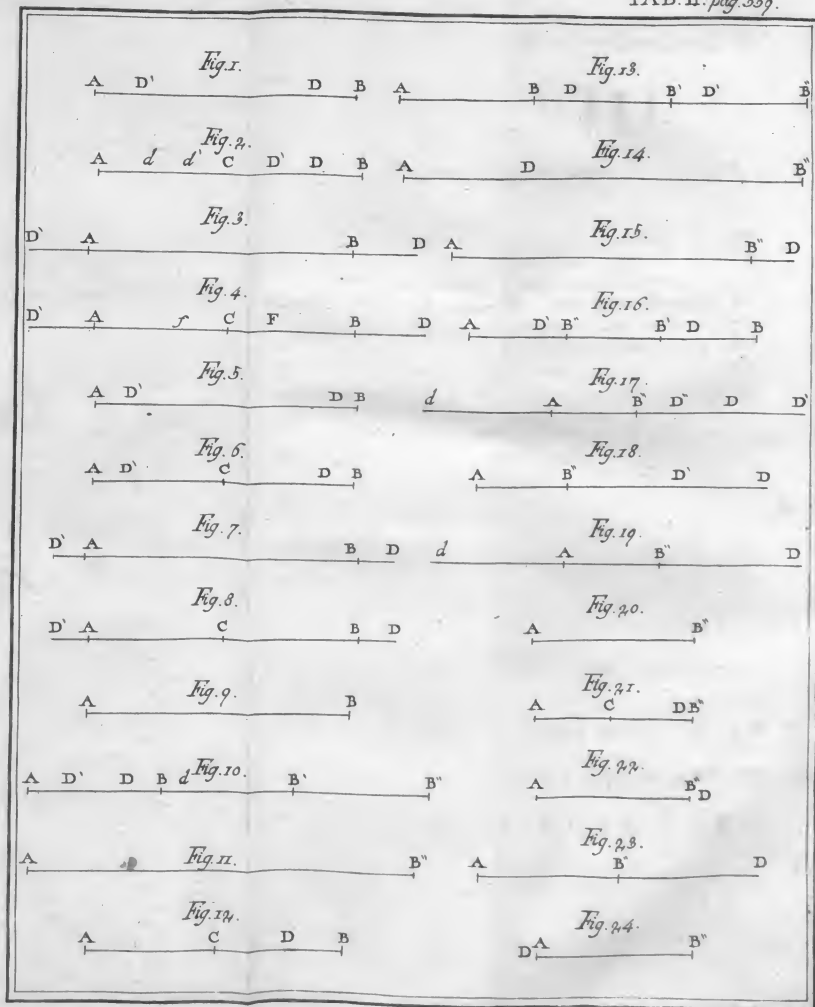 TAB. II. pag. 339.
Fig. 1.
A D' D B
Fig. 2.
A d d' C D' D B
Fig. 3.
D' A B D
Fig. 4.
D' A f C F B D
Fig. 5.
A D' D B
Fig. 6.
A D' C D B
Fig. 7.
D' A B D
Fig. 8.
D' A C B D
Fig. 9.
A B
Fig. 10.
A D' D B d B' B"
Fig. 11.
A B"
Fig. 12.
A C D B
Fig. 13.
A B D B' D' B"
Fig. 14.
A D B"
Fig. 15.
A B" D
Fig. 16.
A D' B" B' D B
Fig. 17.
d A B" D" D D'
Fig. 18.
A B" D' D
Fig. 19.
d A B" D
Fig. 20.
A B"
Fig. 21.
A C D B"
Fig. 22.
A B" D
Fig. 23.
A B" D
Fig. 24.
D A B"